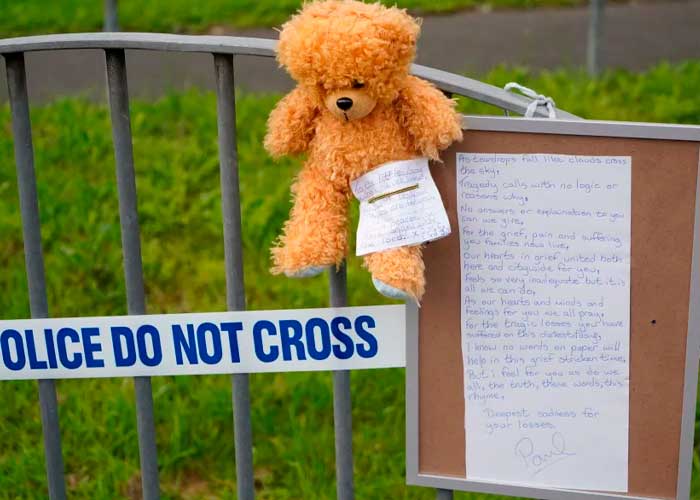 To a little boy
POLICE DO NOT CROSS
As teardrops fall like clouds cross
the sky,
Tragedy calls with no logic or
reasons why,
No answers or explanation to you
can we give,
For the grief, pain and suffering
you families now live,
Our hearts in grief united both
here and citywide for you,
feels so very inadequate but it is
all we can do,
As our hearts and minds and
feelings for you we all pray,
For the tragic losses you have
suffered on this darkest day,
I know no words on paper will
help in this grief stricken time,
But I feel for you as do we
all, the truth, these words, this
rhyme.
Deepest sadness for
your losses.
Paul